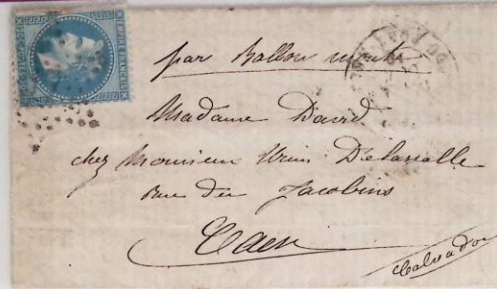 par Ballon monté
Madame David
chez Monsieur Delasalle
rue des Jacobins
Caen
Calvados